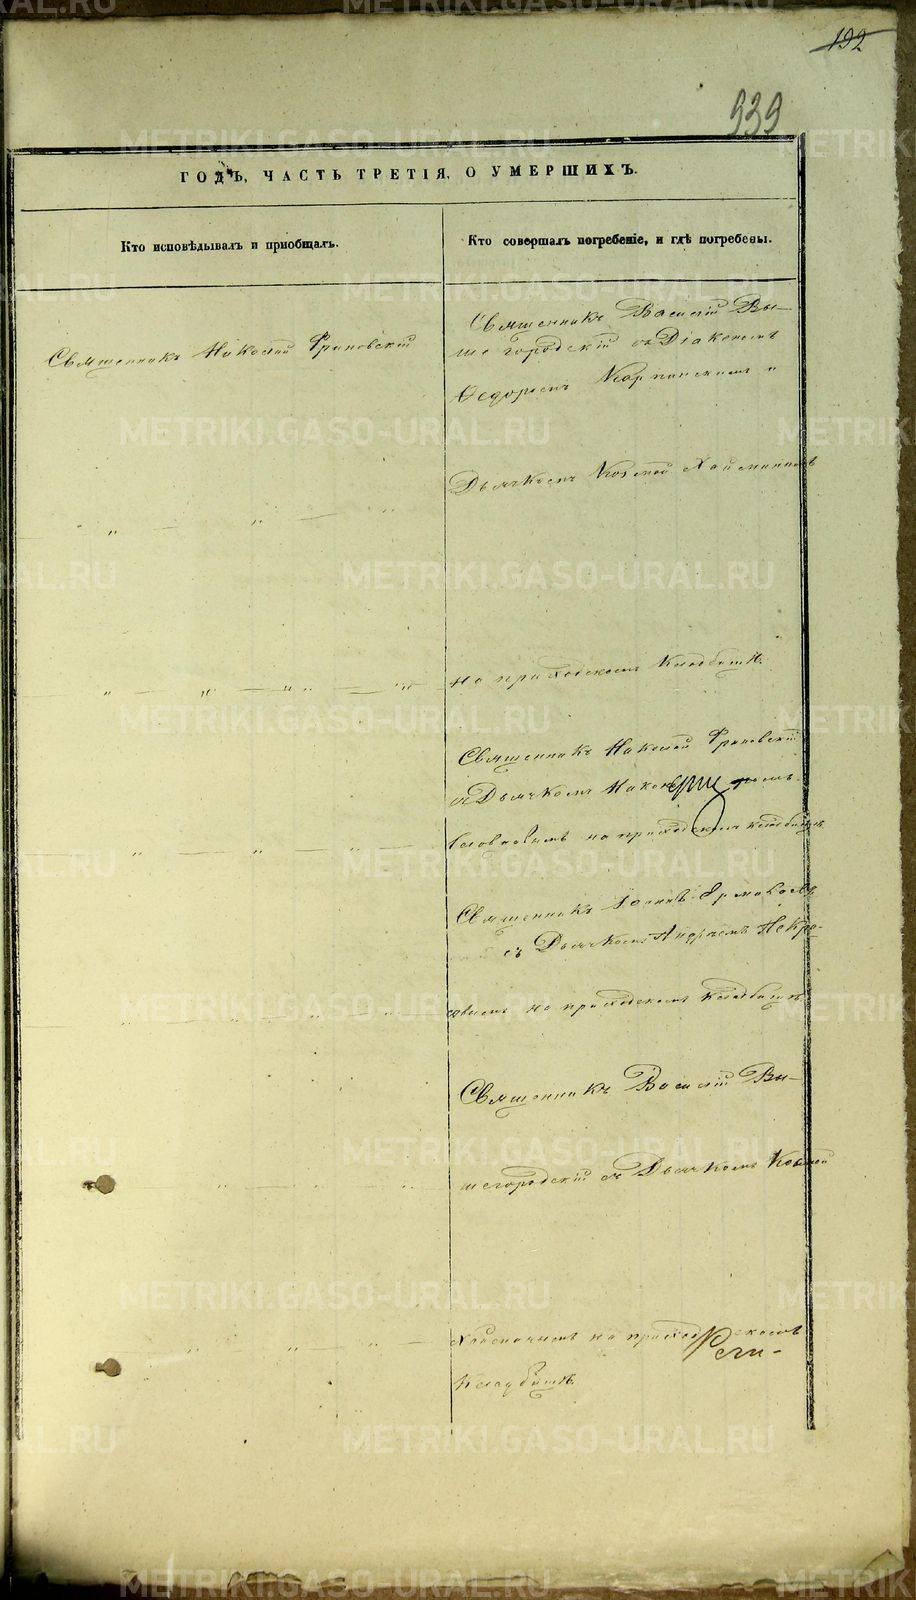 192
939
ГОДЪ, ЧАСТЬ ТРЕТІЯ, О УМЕРШИХЪ.
Кто исповѣдывалъ и приобщалъ.
Кто совершалъ погребеніе, и гдѣ погребены.
Священникъ Николай
Священникъ Василій Вы-
шегородскій съ Діакономъ
Ѳедоромъ
Дьячкомъ Козмой
на приходскомъ кладбищѣ.
Священникъ Николай
съ Дьячкомъ
на приходскомъ кладбищѣ
Священникъ Іоаннъ Ермаковъ
съ Дьячкомъ Андреемъ Некра-
совымъ на приходскомъ кладбищѣ
Священникъ Василій Вы-
шегородскій съ Дьячкомъ Козмой
на приходскомъ
кладбищѣ.
METRIKI.GASO-URAL.RU